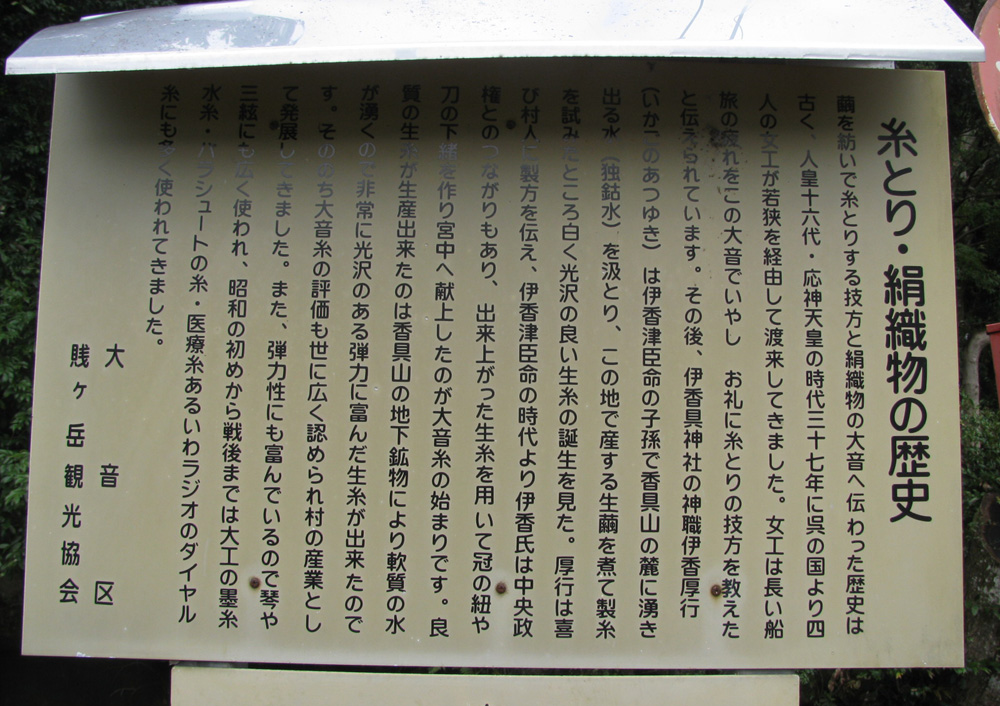 糸とり・絹織物の歴史
繭を紡いで糸とりする技方と絹織物の大音へ伝わった歴史は
古く、人皇十六代・応神天皇の時代三十七年に呉の国より四
人の女工が若狭を経由して渡来してきました。女工は長い船
旅の疲れをこの大音でいやし　お礼に糸とりの技方を教えた
と伝えられています。その後、伊香具神社の神職伊香厚行
（いかごのあつゆき）は伊香津臣命の子孫で香具山の麓に湧き
出る水（独鈷水）を汲とり、この地で産する生繭を煮て製糸
を試みたところ白く光沢の良い生糸の誕生を見た。厚行は喜
び村人に製方を伝え、伊香津臣命の時代より伊香氏は中央政
権とのつながりもあり、出来上がった生糸を用いて冠の紐や
刀の下緒を作り宮中へ献上したのが大音糸の始まりです。良
質の生糸が生産出来たのは香具山の地下鉱物により軟質の水
が湧くので非常に光沢のある弾力に富んだ生糸が出来たので
す。そののち大音糸の評価も世に広く認められ村の産業とし
て発展してきました。また、弾力性にも富んでいるので琴や
三絃にも広く使われ、昭和の初めから戦後までは大工の墨糸
水糸・パラシュートの糸・医療糸あるいわラジオのダイヤル
糸にも多く使われてきました。
大音区
賤ヶ岳観光協会